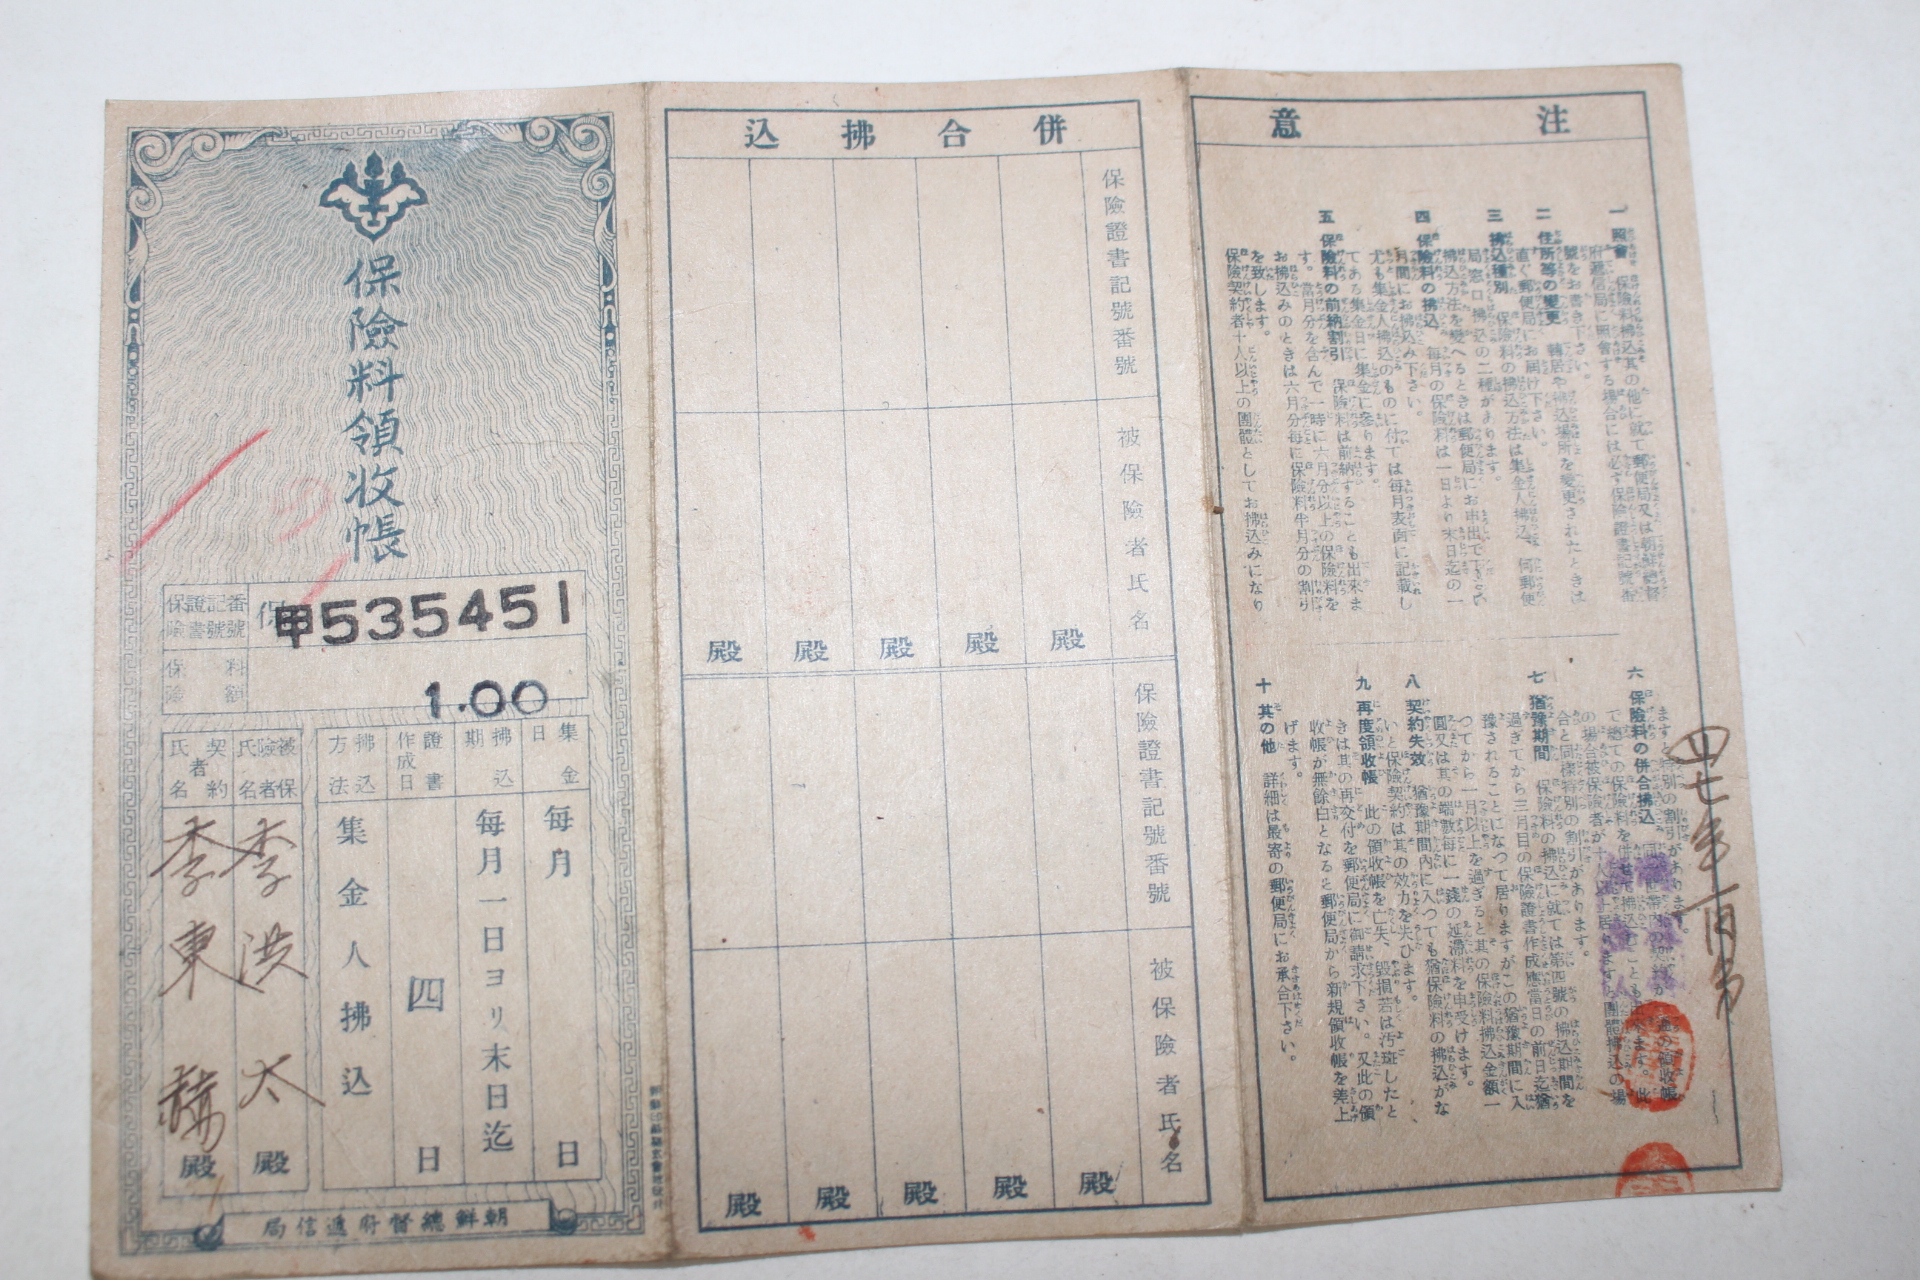 保險料領收帳
保險證書記號番號
保
甲535451
保險料額
1.00
集金日
毎月
日
拂込期
毎月一日ヨリ末日迄
證書作成日
四
日
拂込方法
集金人拂込
被保險者氏名
李洪太
殿
契約者氏名
李東
殿
朝鮮總督府遞信局
併合拂込
保險證書記號番號
被保險者氏名
殿
殿
殿
殿
殿
保險證書記號番號
被保險者氏名
殿
殿
殿
殿
殿
注意
一 照會 保險料拂込其の他に就て郵便局又は朝鮮總督
府遞信局に照會する場合には必ず保險證書記號番
號をお書き下さい。
二 住所等の變更 轉居や拂込場所を變更されたときは
直ぐ郵便局にお届け下さい。
三 拂込種別 保險料の拂込方法は集金人拂込、何郵便
局窓口拂込の二種があります。
拂込方法を變へるときは郵便局にお申出で下さい
四 保險料の拂込 毎月の保險料は一日より末日迄の一
月間にお拂込み下さい。
尤も集金人拂込のものに付ては毎月表面に記載し
てある集金日に集金に參ります。
五 保險料の前納割引 保險料は前納することも出來ま
す。當月分を含んで一時に六月分以上の保險料を
お拂込みのときは六月分毎に保險料半月分の割引
を致します。
保險契約者十人以上の團體としてお拂込みになり
ますと特別の割引があります。
六 保險料の併合拂込
で總ての保險料を併せて拂込むことも
の場合被保險者が十人以上居りますと團體拂込の場
合と同樣特別の割引があります。
七 猶豫期間 保險料の拂込に就ては第四號の拂込期間を
過ぎてから三月目の保險證書作成應當日の前日迄猶
豫されることになつて居りますがこの猶豫期間に入
つてから一月以上を過ぎると其の保險料拂込金額一
圓又は其の端數毎に一錢の延滯料を申受けます。
八 契約失效 猶豫期間内に入つても猶保險料の拂込がな
いと保險契約は其の效力を失ひます。
九 再度領收帳 此の領收帳を亡失、毀損若は汚斑したと
きは其の再交付を郵便局に御請求下さい。又此の領
收帳が無餘白となると郵便局から新規領收帳を差上
げます。
十 其の他 詳細は最寄の郵便局にお承合下さい。